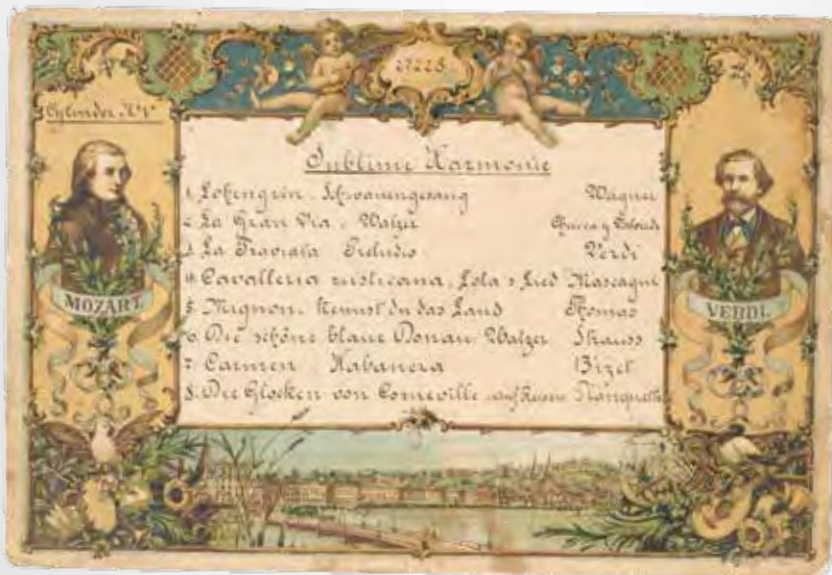 27225
Cylinder No 1
Sublime Harmonie
1. Lohengrin. Schwanengesang Wagner
2. La Gran Via. Walzer Chueca y Valverde
3. La Traviata Preludio Verdi
4. Cavalleria rusticana, Lola's Lied Mascagni
5. Mignon. Kennst du das Land Thomas
6. Die schöne blaue Donau. Walzer Strauss
7. Carmen Habanera Bizet
8. Die Glocken von Corneville auf Reisen Planquette
MOZART.
VERDI.